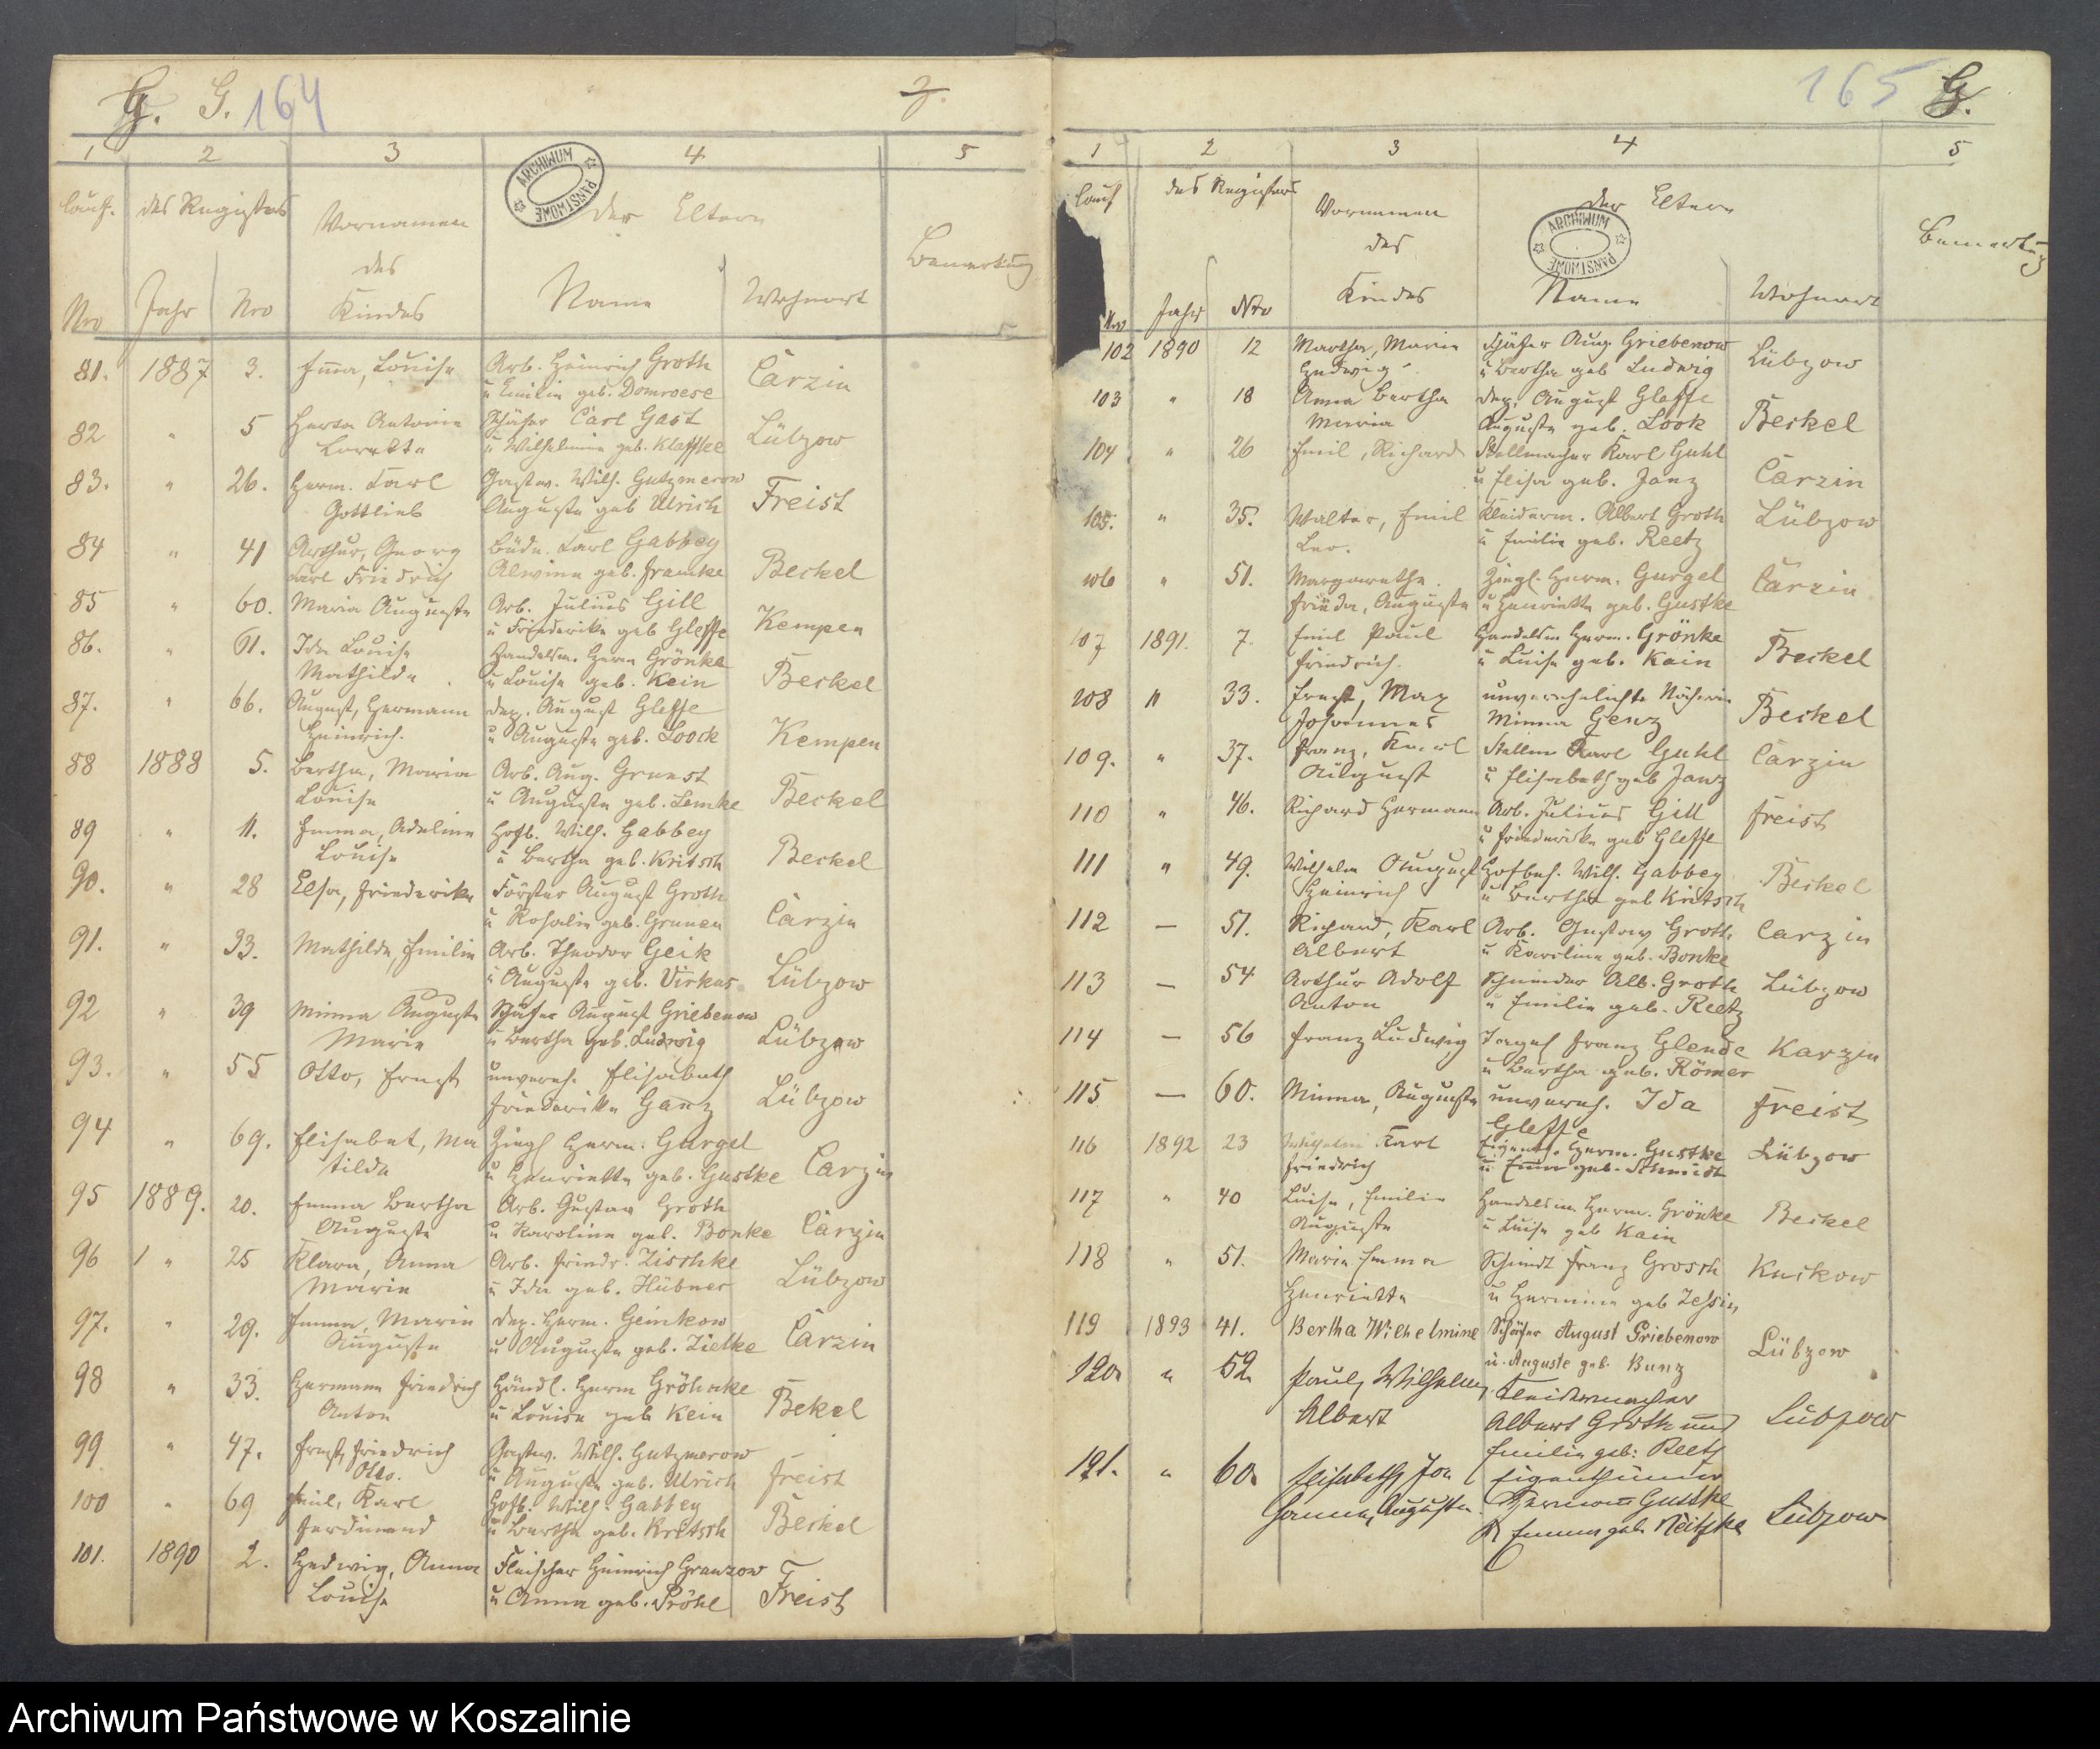 G. G. 164
1 2 3 4 5
lauf. des Registers Vornamen der Eltern Bemerkung
des
Nro Jahr Nro Kindes Name Wohnort
ARCHIWUM PAŃSTWOWE
81. 1887 3. Emma, Louise Arb. Heinrich Groth Carzin
u Emilie geb. Domroese
82 " 5 Herta Antonie Schäfer Carl Gast Lübzow
u Wilhelmine geb. Klaffke
83. " 26. Herm. Carl Gastw. Wilh. Gutzmerow Freist
Gottlieb Auguste geb Ulrich
84 " 41 Arthur, Georg Büdn. Carl Gabbey Beckel
Carl Friedrich Alwine geb. Framke
85 " 60. Maria Auguste Arb. Julius Gill Kempen
u Friederike geb Gleffe
86. " 61. Ida Louise Handelsm. Herm Grönke Beckel
Mathilde u Louise geb. Kein
87. " 66. August, Hermann Dep. August Gleffe Kempen
Heinrich. u Auguste geb. Loock
88 1888 5. Bertha, Maria Arb. Aug. Grunst Beckel
Louise u Auguste geb. Lemke
89 " 11. Emma, Adeline Hofb. Wilh. Gabbey Beckel
Louise u Bertha geb. Kritsch
90. " 28 Elsa, Friederike Förster August Groth Carzin
u Rosalie geb. Grunen
91. " 33. Mathilde, Emilie Arb. Theodor Geik Lübzow
u Auguste geb. Virkus
92 " 39 Minna Auguste Schäfer August Griebenow Lübzow
Marie u Bertha geb. Ludwig
93. " 55 Otto, Ernst unvereh. Elisabeth Lübzow
Friederike Ganz
94 " 69. Elisabet, Ma Ziegl Herm. Gurgel Carzin
tilda u Henriette geb. Gustke
95 1889. 20. Emma Bertha Arb. Gustav Groth Carzin
Auguste u Karoline geb. Bonke
96 " 25 Klara, Anna Arb. Friedr. Zischke Lübzow
Marie u Ida geb. Hübner
97. " 29. Emma, Marie Dep. Herm. Geinkow Carzin
Auguste u Auguste geb. Zielke
98 " 33. Hermann Friedrich Händl. Herm Gröhnke Bekel
Anton u Louise geb Kein
99 " 47. Ernst, Friedrich Gastw. Wilh. Gutzmerow Freist
Otto. u Auguste geb. Ulrich
100 " 69 Emil, Karl Hofb. Wilh. Gabbey Beckel
Ferdinand u Bertha geb. Kritsch
101. 1890 2. Hedwig, Anna Fleischer Heinrich Granzow Freist
Louise u Anna geb. Pröhl
165 G.
1 2 3 4 5
lauf des Registers Vornamen der Eltern Bemerkung
des
Nro Jahr Nro Kindes Name Wohnort
ARCHIWUM PAŃSTWOWE
102 1890 12 Martha, Marie Schäfer Aug Griebenow Lübzow
Hedwig u Bertha geb Ludwig
103 " 18 Anna Bertha Dep. August Gleffe Beckel
Maria Auguste geb. Look
104 " 26 Emil, Richard Stellmacher Karl Guhl Carzin
u Elisa geb. Janz
105. " 35. Walter, Emil Kleiderm. Albert Groth Lübzow
Leo. u Emilie geb. Reetz
106 " 51. Margarethe Ziegl. Herm. Gurgel Carzin
Frieda, Auguste u Henriette geb. Gustke
107 1891. 7. Emil Paul Handelsm Herm. Grönke Beckel
Friedrich. u Luise geb. Kain
108 " 33. Ernst, Max unverehelichte Näherin Beckel
Johannes Minna Genz
109. " 37. Franz, Karl Stellm Karl Guhl Carzin
August u Elisabeth geb Janz
110 " 46. Richard Hermann Arb. Julius Gill Freist
u Friederike geb Gleffe
111 " 49. Wilhelm August Hofbes. Wilh. Gabbey Beckel
Heinrich u Bertha geb Kritsch
112 — 51. Richard, Karl Arb. Gustav Groth Carzin
Albert u Karoline geb. Bonke
113 — 54 Arthur Adolf Schneider Alb. Groth Lübzow
Anton u Emilie geb. Reetz
114 — 56 Franz Ludwig Franz Glende Karzin
u Bertha geb. Römer
115 — 60. Minna, Auguste unvereh. Ida Freist
Gleffe
116 1892 23 Wilhelm Karl Eigenth. Herm. Gustke Lübzow
Friedrich u. Emm geb. Schmidt
117 " 40 Luise, Emilie Handelsm Herm. Grönke Beckel
Auguste u Luise geb Kain
118 " 51. Marie Emma Schmidt Franz Grosch Kuckow
Henriette u Hermine geb Zessin
119 1893 41. Bertha Wilhelmine Schäfer August Griebenow Lübzow
u. Auguste geb. Bunz
120. " 52. Paul, Wilhelm, Kleidermacher Lübzow
Albert Albert Groth und
Emilie geb: Reetz
121. " 60. Elisabeth, Jo Eigenthümer Lübzow
hanna, Auguste Hermann Gustke
u Emma geb. Reitzke
Archiwum Państwowe w Koszalinie